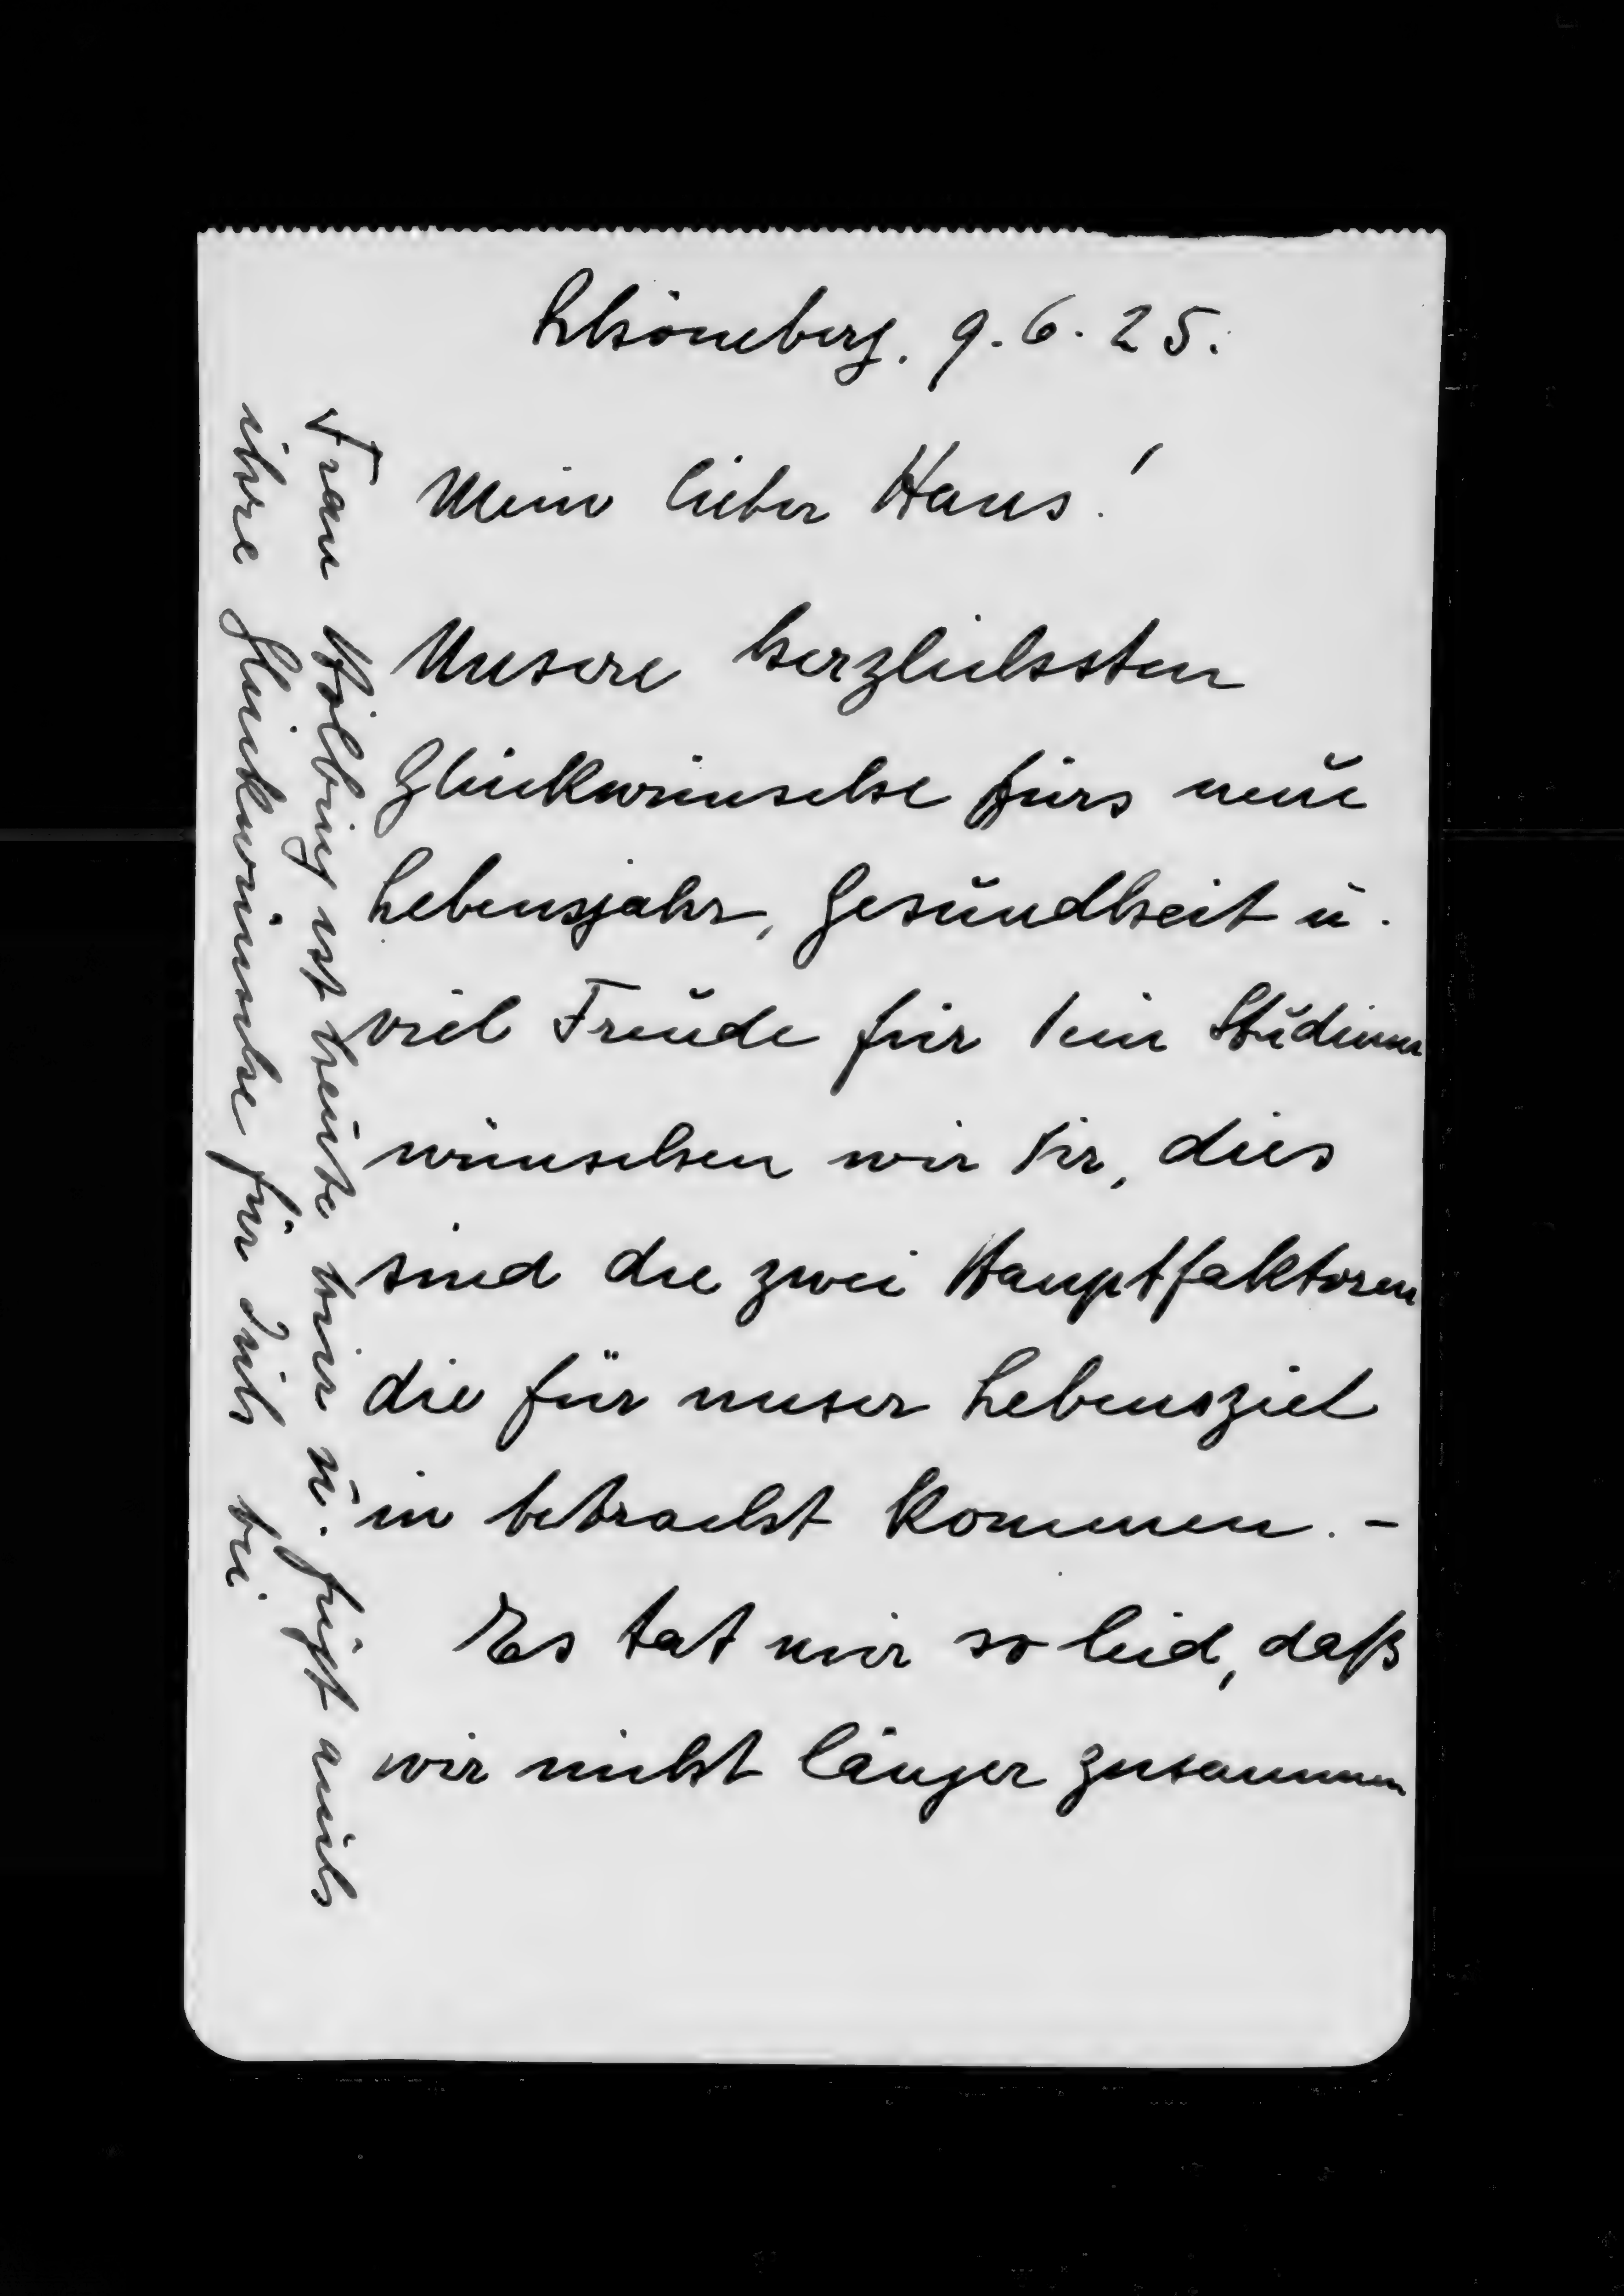 Schöneberg. 9.6.25.
Mein lieber Hans!
Unsere herzlichsten
Glückwünsche fürs neue
Lebensjahr, Gesundheit u.
viel Freude für Dein Studium
wünschen wir Dir, dies
sind die zwei Hauptfaktoren
die für unser Lebensziel
in betracht kommen. -
Es tat mir so leid, daß
wir nicht länger zusammen
Frau Kölbing ist heute hier u. fügt auch
ihre Glückwünsche für Dich bei